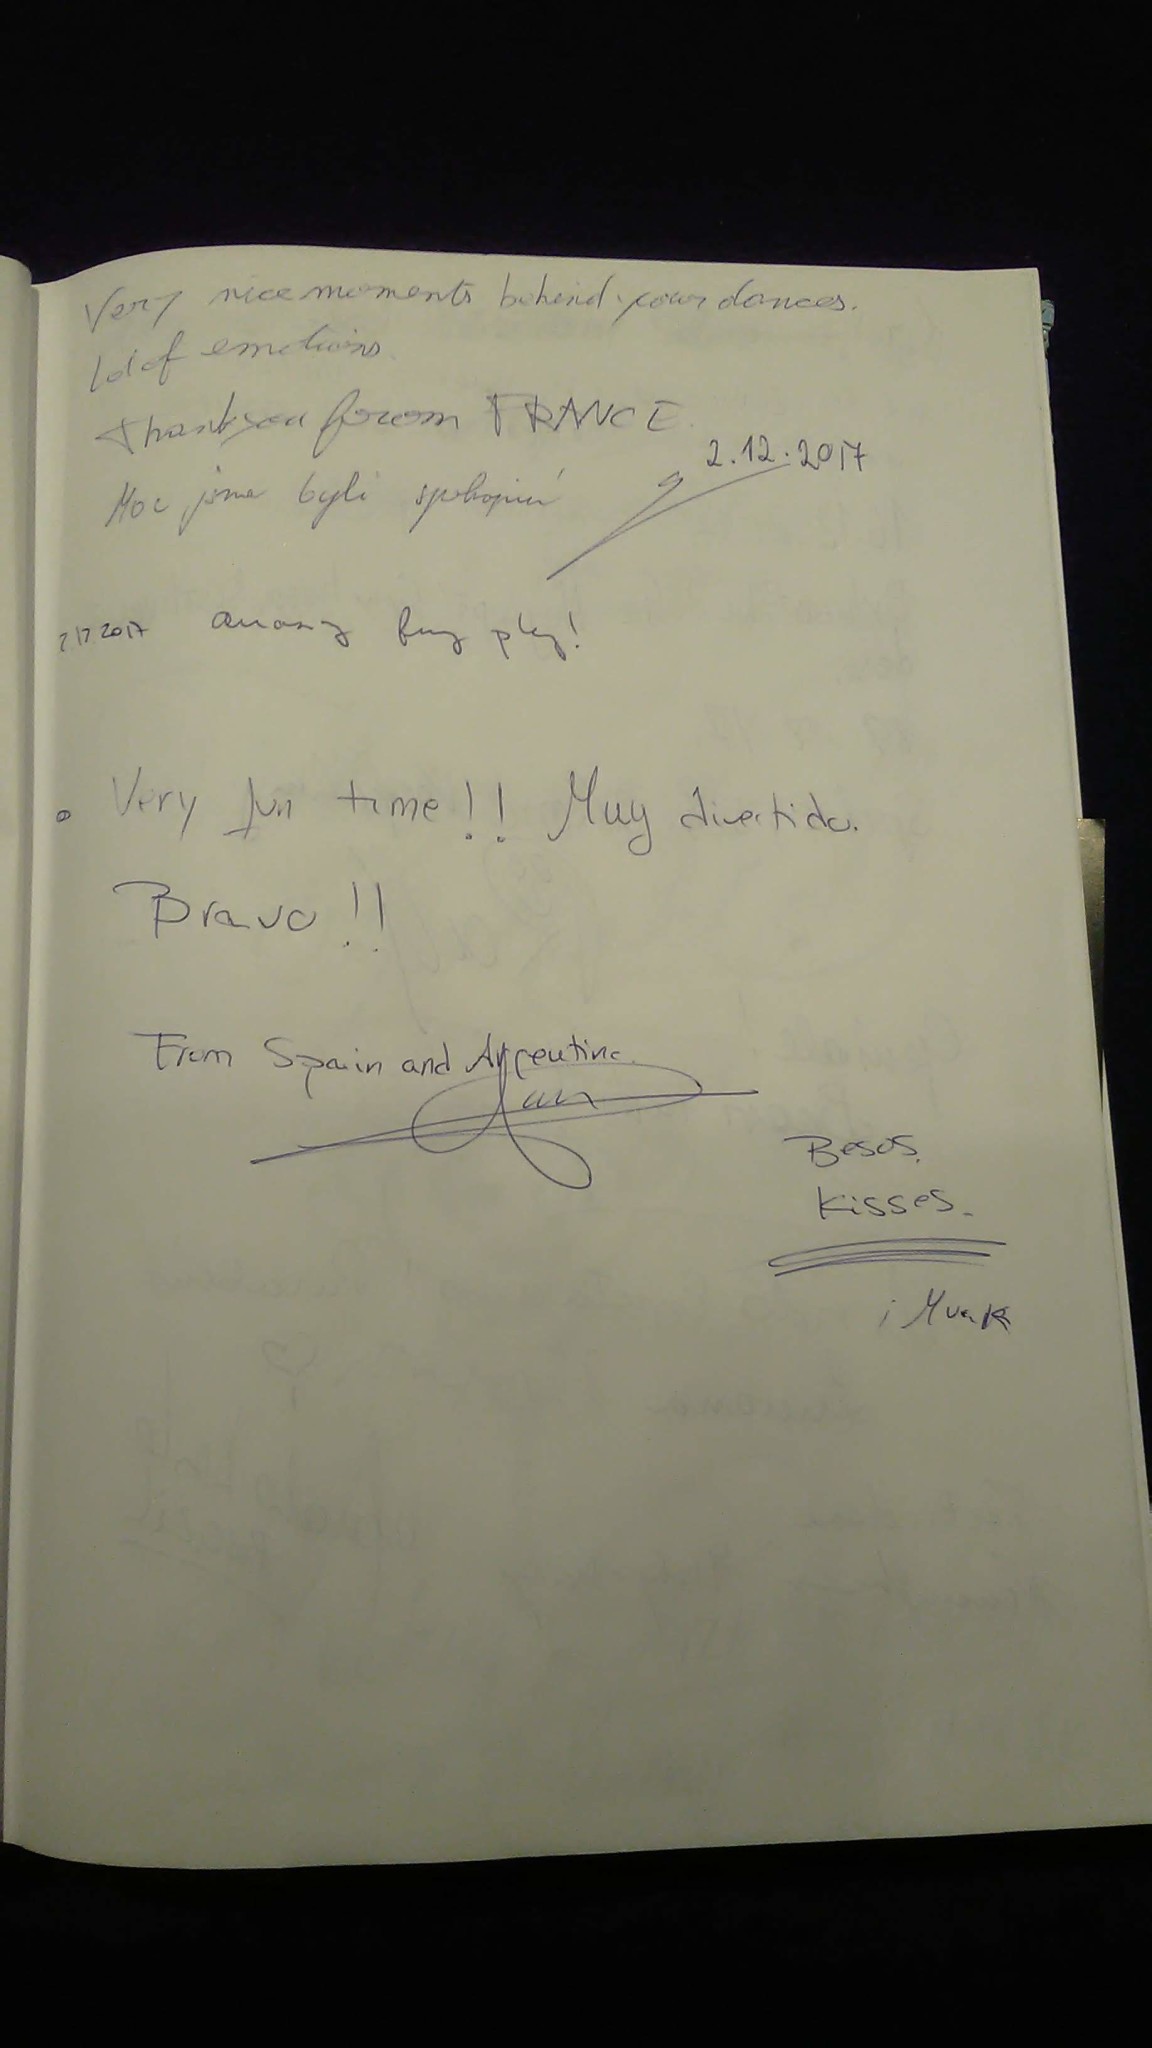 Very nice moments behind your dances.
Lot of emotions.
Thank you from FRANCE.
2.12.2017
Moc jsme byli spokojení
2.12.2017 funny play!
Very fun time!! Muy divertido.
Bravo!!
From Spain and Argentina.
Besos.
Kisses.
¡Muak